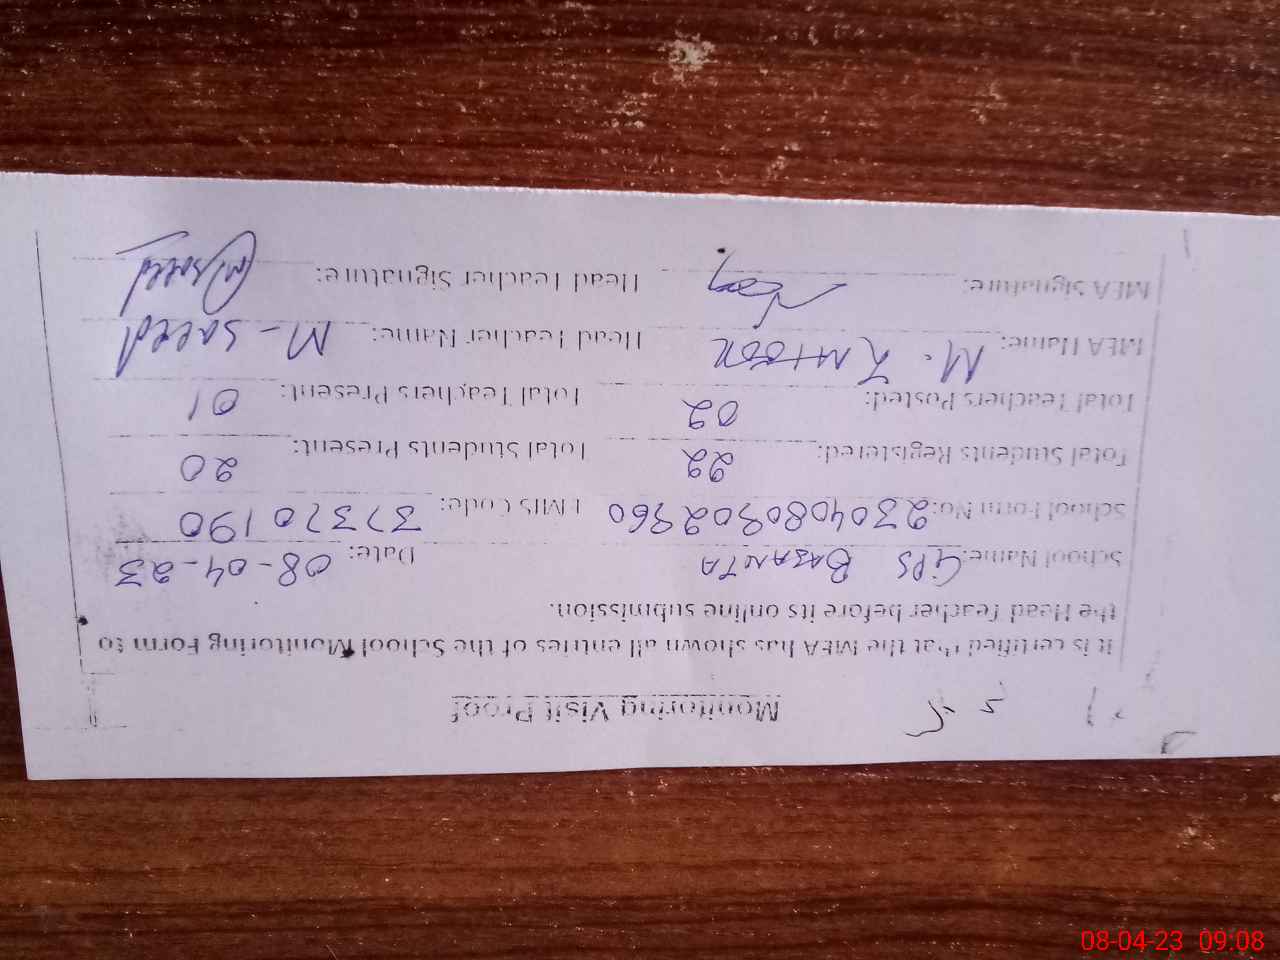 Monitoring Visit Proof
It is certified that the MEA has shown all entries of the School Monitoring Form to
the Head Teacher before its online submission.
School Name: GPS BASANTA Date: 08-04-23
School Form No: 2304080902960 EMIS Code: 37370190
Total Students Registered: 22 Total Students Present: 20
Total Teachers Posted: 02 Total Teachers Present: 01
MEA Name: M. Head Teacher Name: M-Saeed
MEA Signature: Head Teacher Signature: Msaeed
08-04-23 09:08